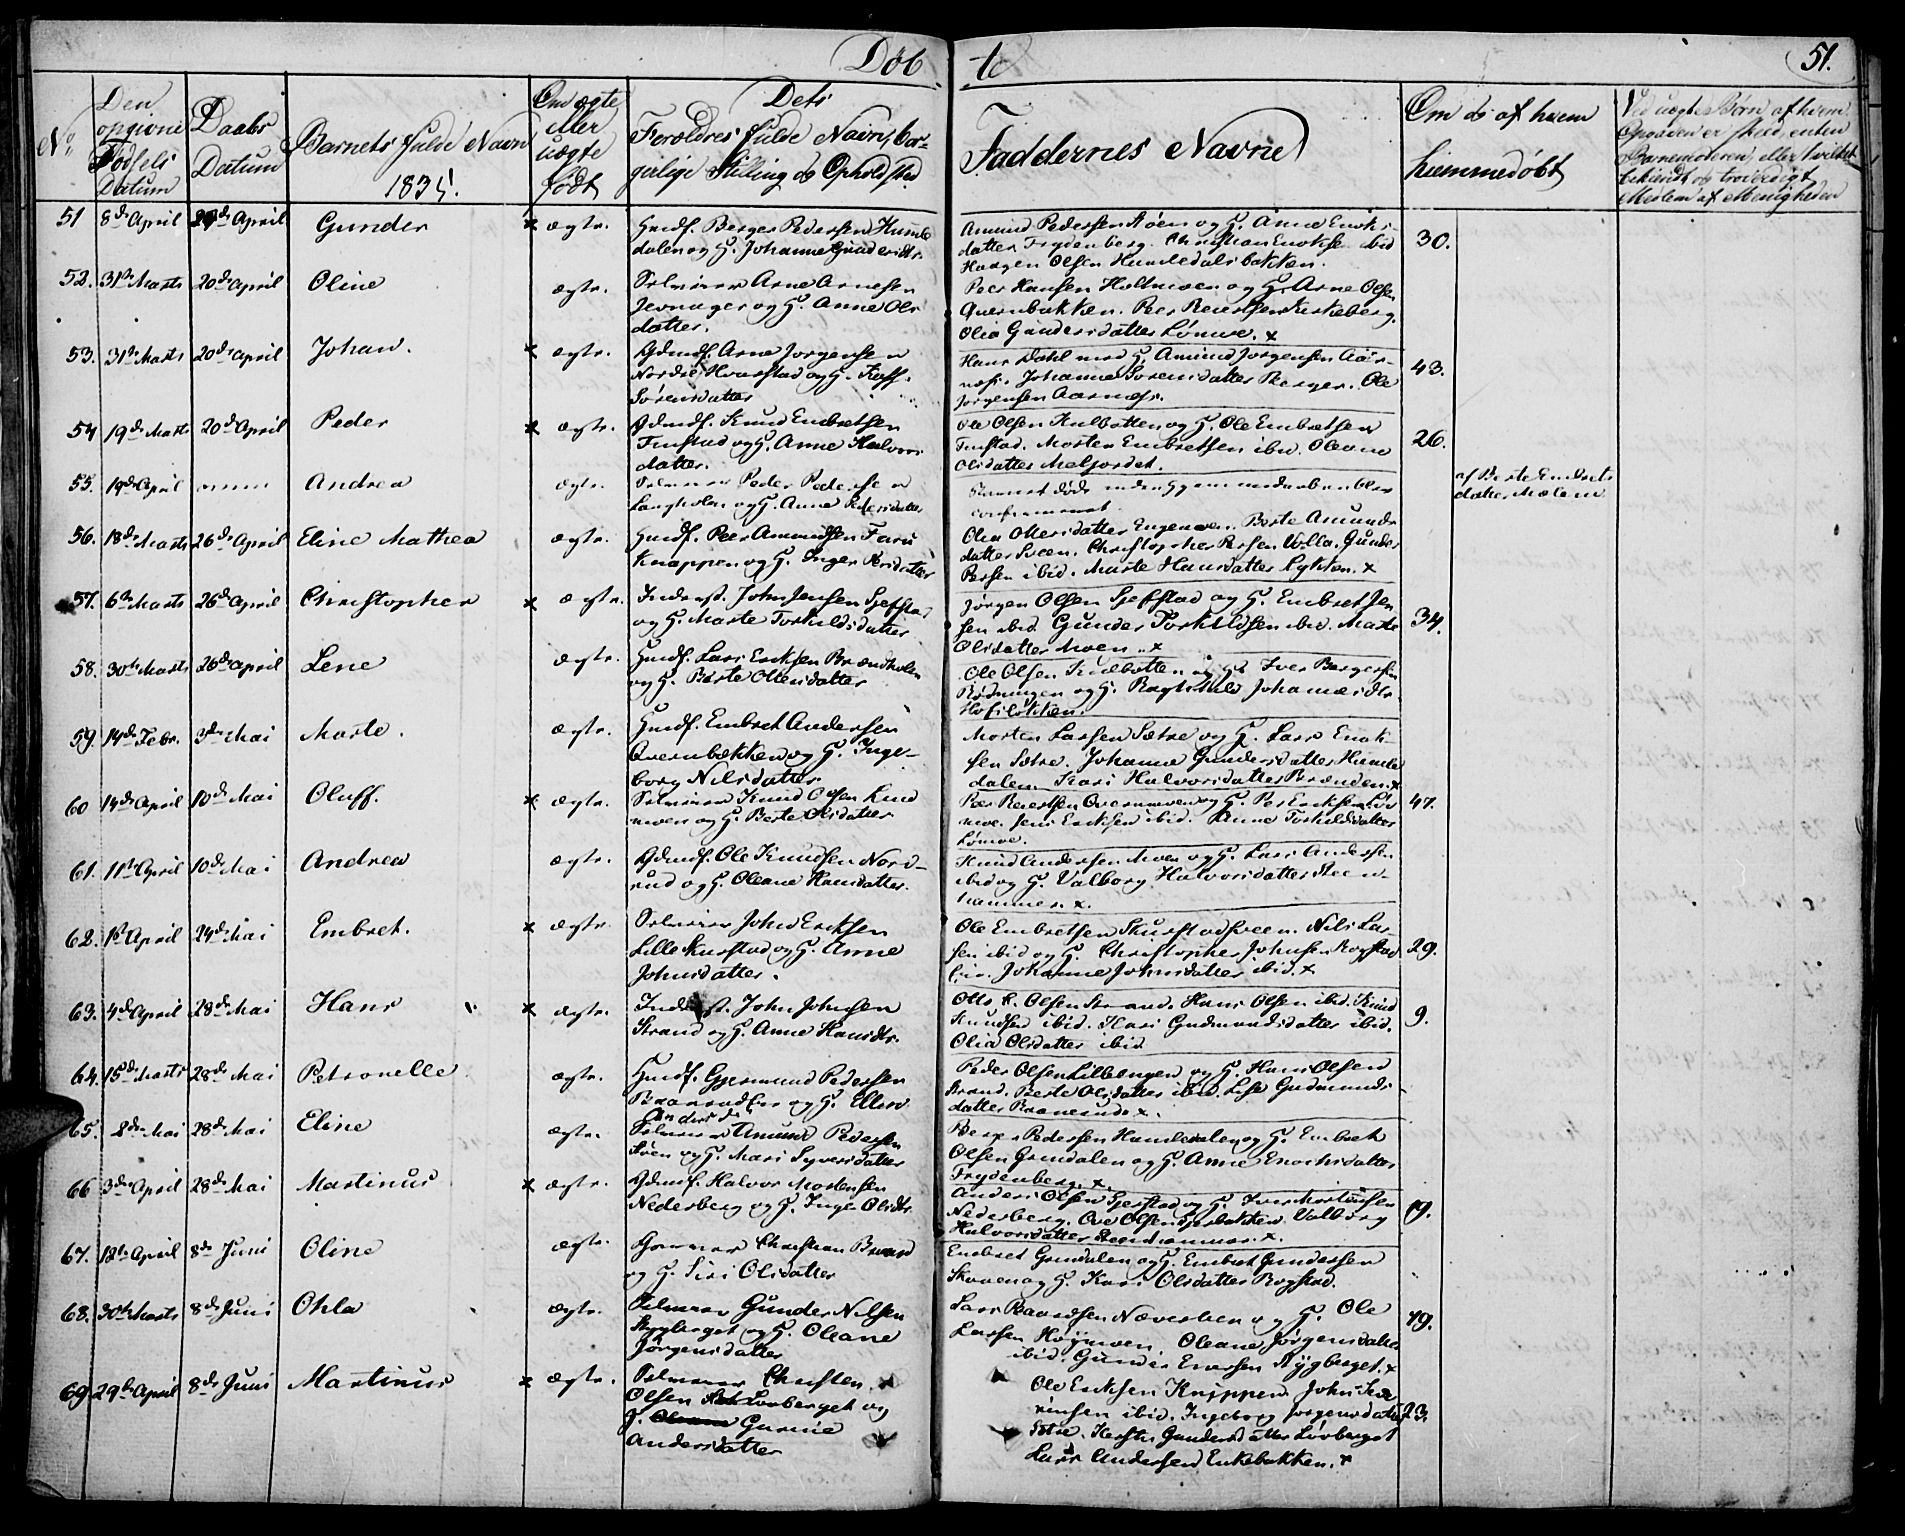 Døbte
51.
No
Den opgivne Fødsels Datum
Daabs Datum
Barnets fulde Navn
1835.
Om ægte eller uægte født
Dets Forældres fulde Navn, borgerlige Stilling og Opholdsted
Faddernes Navne
Om og af hvem hiemmedøbt
Ved uægte Børn af hvem Opgaven er skeed, enten Barnemoderen eller hvilket bekiendt og troværdigt Medlem af Menigheden
51 8de April April Gunder × ægte. Huusf. Berger Pedersen Humledalen og H. Johanne Gundersdtr.
Amund Pedersen og H. Anne Enoksdatter Frydenberg. Christian Enoksen ibid
Haagen Olsen Humledalsbakken.
30.
52. 31te Marts 20de April Oline ægte. Selveier Arne Arnesen
Jevnager og H. Anne Olsdatter.
Peer Hansen Holtmoen og H. Arne Olsen
Quernbakken. Peer Reiersen Kirkeberg.
Olia Gundersdatter Lømoe. ×
53. 31te Marts 20de April Johan. × ægte. Gdmdf. Arne Jorgensen
Nordre Hvarstad og H.
Sørensdatter
Hans Dahl med H. Amund Jorgensen
Johanne Sorensdatter Berger. Ole
Jorgensen Aarnæs.
43.
54 19de Marts 20de April Peder × ægte. Gdmdf. Knud Embretsen
Finstad og H. Anne Halvorsdatter.
Ole Olsen Kulbotten og H. Ole Embretsen
Finstad. Morten Embretsen ibid. Oleane
Olsdatter Meljordet.
26.
55. 19de April Andrea ægte. Selveier Peder Pedersen
Langholen og H. Anne Pedersdatter
Barnet døde inden Hjemmedaaben blev
confirmeret.
af Berte Embretsdatter Mælum
56. 18de Marts 26de April Eline Mathea ægte. Huusf. Peer Amundsen
Knappen og H. Inger Persdatter
Olia Ottersdatter Engemoen. Berte Amundsdatter Sveen. Christopher Persen Volla. Gunder
Persen ibid. Marte Hansdatter Lykken. ×
57. 6te Marts 26de April Christopher × ægte. Inderst. John Jensen Sjefstad
og H. Marte Torkildsdatter
Jørgen Olsen Sjefstad og H. Embret Jensen ibid. Gunder Torkildsen ibid. Marte
Olsdatter Moen. ×
34.
58. 30te Marts 26de April Lene ægte. Huusf. Lars Eriksen Brændholen
og H. Berte Ottersdatter
Ole Olsen og H. Iver Bergersen
Rødningen og H. Ragnhild Johannesdtr.
59. 14de Febr. 3die Mai Marte. ægte. Huusf. Embret Andersen
Quernbækken og H. Ingeborg Nilsdatter
Morten Larsen Sætre og H. Lars Enoksen Sætre. Johanne Gundersdatter Humledalen. Kari Halvorsdatter Brænden. ×
60 14de April 10de Mai Oluff. × ægte. Selveier Knud Olsen Lundmoen og H. Berte Olsdatter
Peer Reiersen Overmoen og H. Per Eriksen
Jens Eriksen ibid. Anne Torkildsdatter
Lømoe.
47.
61. 11te April 10de Mai Andrea ægte. Gdmdf. Ole Knudsen Nordrud og H. Oleane Hansdatter.
Knud Andersen Moen og H. Lars Andersen
ibid og H. Valborg Halvorsdatter Steenhammer. ×.
62. 1ste April 24de Mai Embret. × ægte. Selveier John Eriksen
Lille og H. Anne
Johnsdatter.
Ole Embretsen Nils Larsen ibid og H. Christopher Johnsen Rogstad
Johanne Johnsdatter ibid. ×
29.
63. 4de April 28de Mai Hans × ægte. Inderst. John Johnsen
Strand og H. Anne Hansdtr.
Otto Olsen Strand. Hans Olsen ibid. Knud
Knudsen ibid. Kari Gudmundsdatter ibid.
Olia Olsdatter ibid
9.
64. 15de Marts 28de Mai Petronelle ægte. Huusf. Gjermund Pedersen
og H. Ellen
Andersdtr.
Peder Olsen Lillengen og H. Hans Olsen
Strand. Berte Olsdatter ibid. Lise Gudmundsdatter ×.
65. 2den Mai 28de Mai Eline ægte. Selveier Amund Pedersen
og H. Mari Syversdatter
Berger Pedersen Humledalen og H. Embret
Olsen Grindalen og H. Anne Enochsdatter
Frydenberg. ×.
66 3die April 28de Mai Martinus × ægte. Gdmdf. Halvor Mortensen
Nederberg og H. Inger Olsdtr.
Anders Olsen Sjefstad og H. Iver Mortensen
Nederberg. Ove Olsen Valborg
Halvorsdatter Steenhammer. ×.
19.
67. 12te April 8de Juni Oline ægte. Christian
og H. Siri Olsdatter
Embret Grindalen og H. Embret Gundersen
Skoven og H. Kari Olsdatter Rogstad.
68. 30te Marts 8de Juni Ohla ægte. Selveier Gunder Nilsen
Rygberget og H. Oleane
Jørgensdatter
Lars Baardsen Næverleen og H. Ole
Larsen Høymoen. Oleane Jørgensdatter
ibid. Gunder Eversen Rygberget. ×
19.
69. 29de April 8de Juni Martinus × ægte. Selveier Christen
Olsen Løvberget og
H. Gunine
Andersdatter
Ole Eriksen Knippen. John
ibid. Ingeborg Jorgensdatter
Sætre. Kersti Gundersdatter Lovberget
Lars Andersen Enkebakken. ×
23.